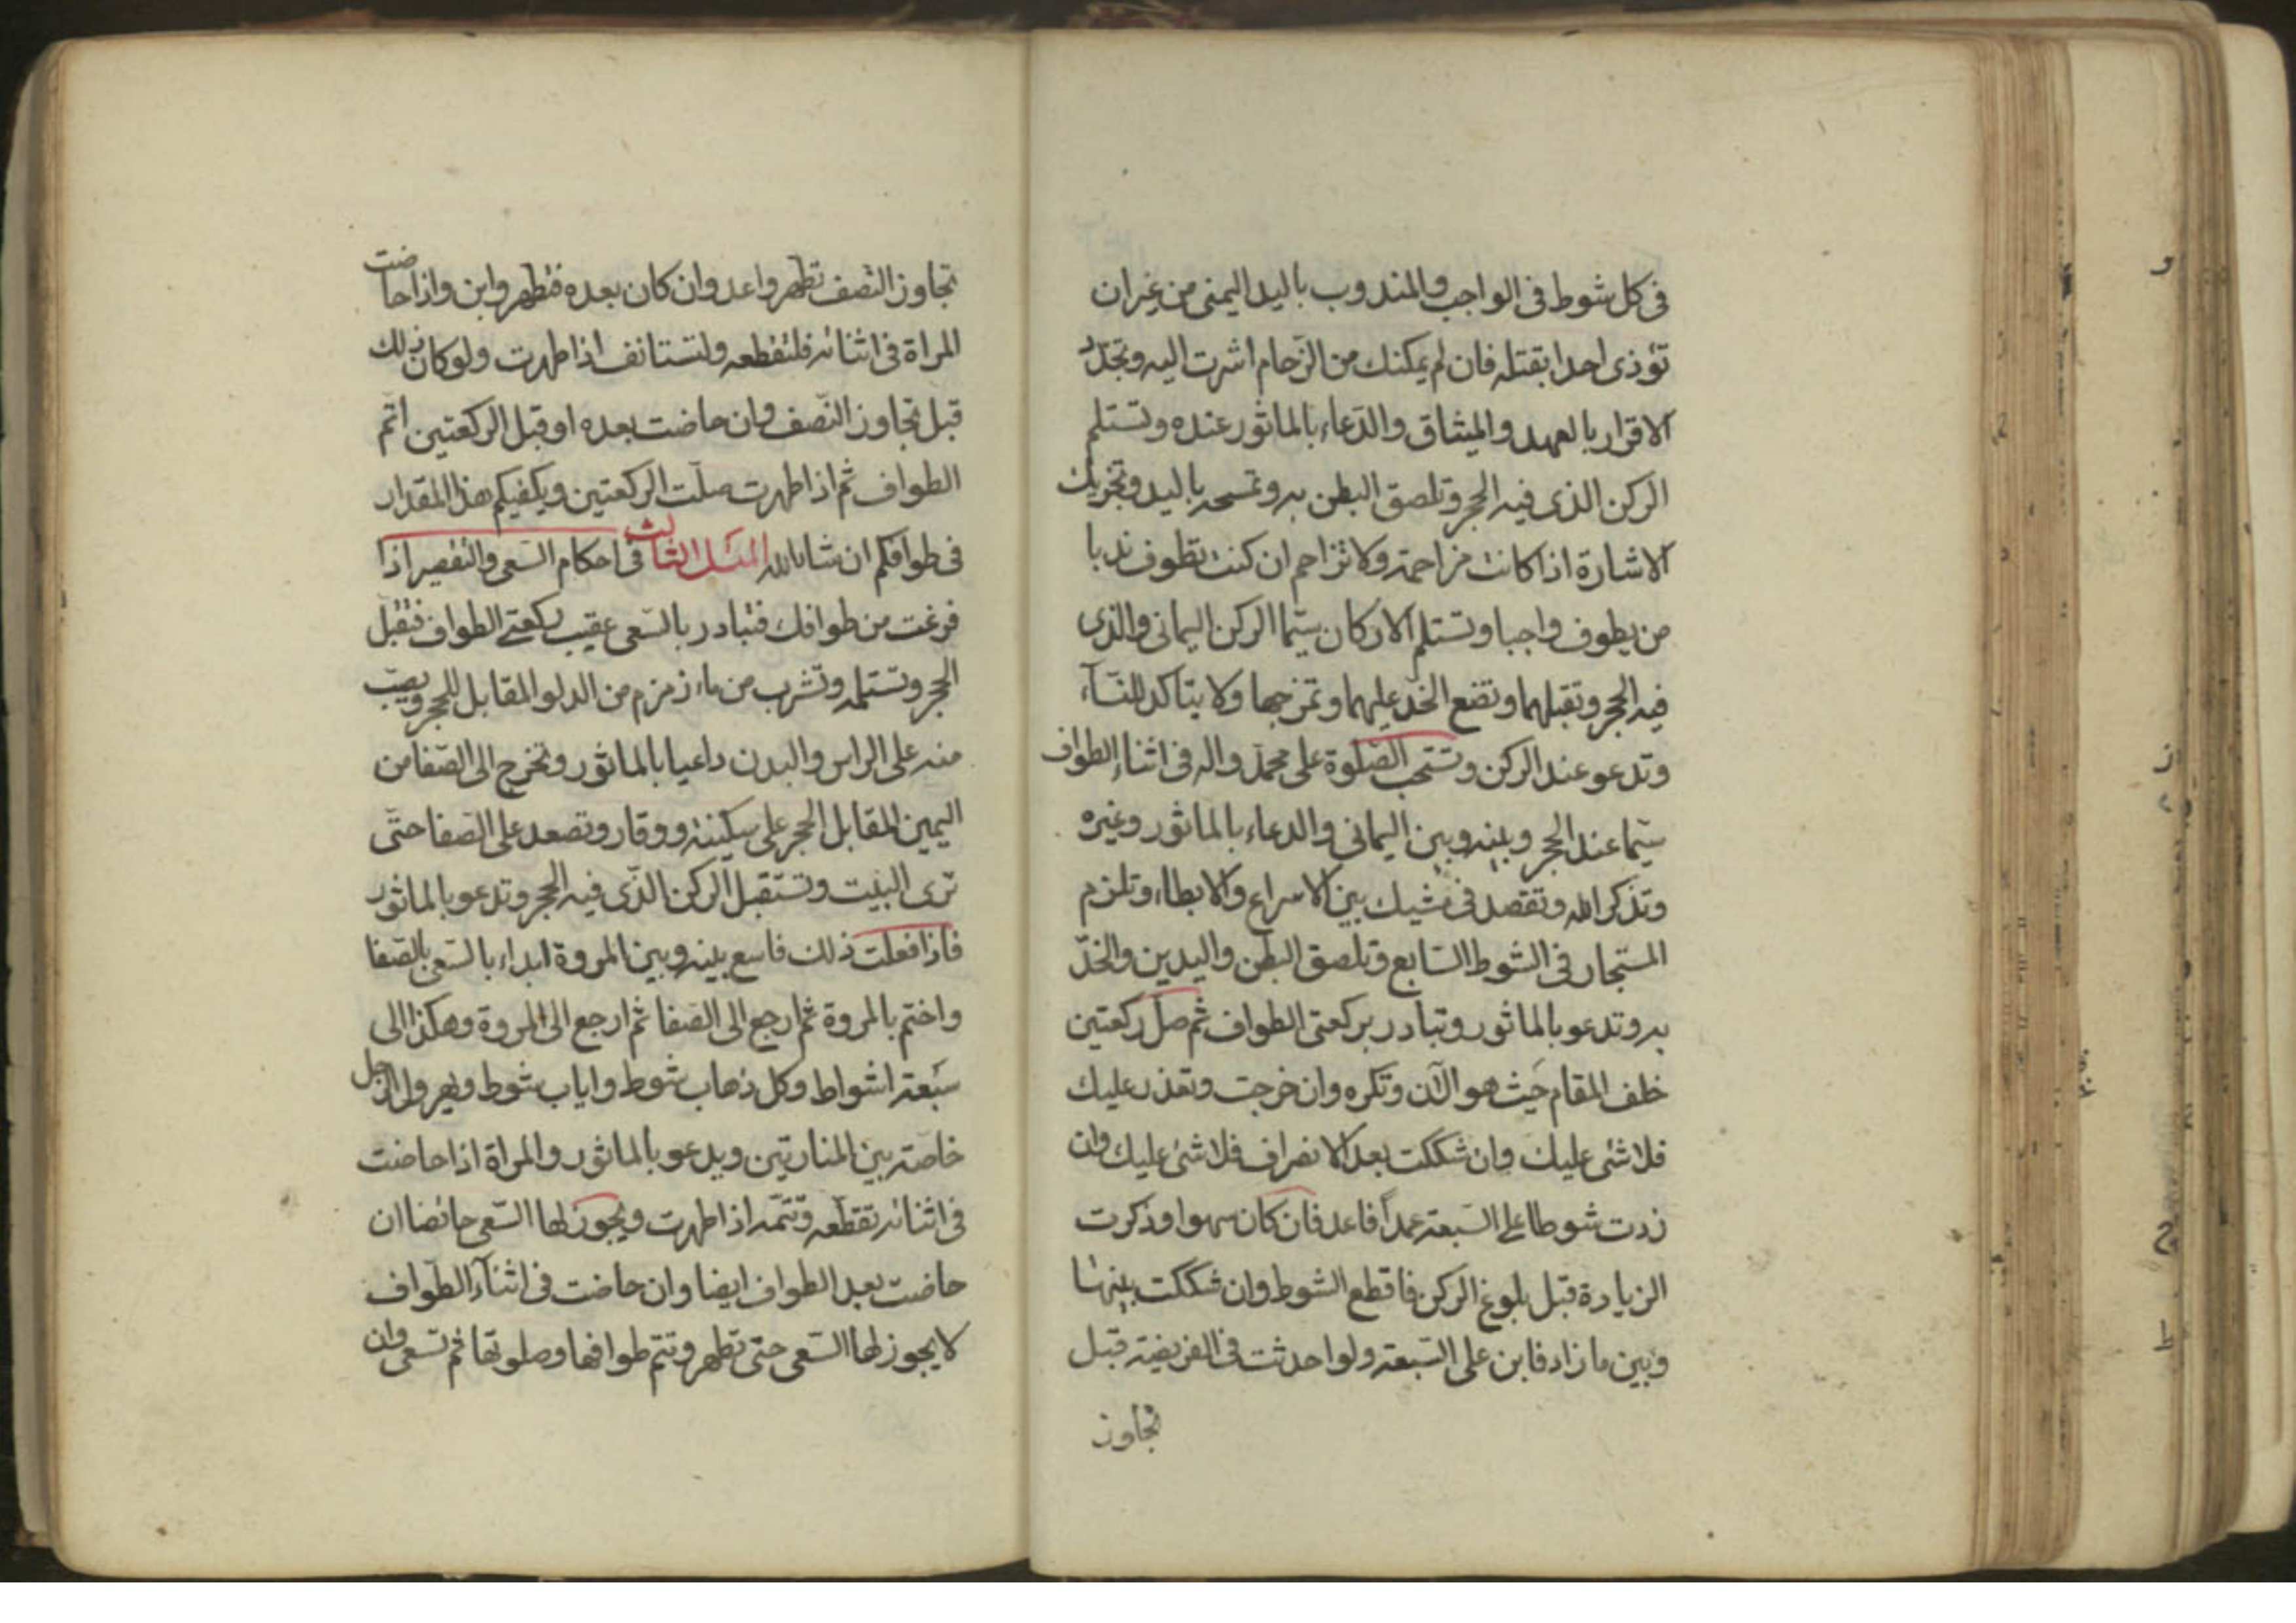 في كل شوط في الواجب والمندوب باليد اليمنى من غير ان
تؤذي احدا بقتله فان لم يمكنك من الزحام اشرت اليه وتجدد
الاقرار بالعهد والميثاق والدعاء بالماثور عنده وتستلم
الركن الذي فيه الحجر وتلصق البطن به وتمسحه باليد وتجزيك
الاشارة اذا كانت مزاحمة ولا تزاحم ان كنت تطوف ندبا
من يطوف واجبا وتستلم الاركان سيما الركن اليماني والذي
فيه الحجر وتقبلهما وتضع الخد عليهما ولا يتاكد للنسآء
وتدعو عند الركن وتستحب الصلوة على محمد واله في اثناء الطواف
سيما عند الحجر وبينه وبين اليماني والدعاء بالماثور وغيره
وتذكر الله وتقصد في مشيك بين الاسراع والابطاء وتلزم
المستجار في الشوط السابع وتلصق البطن واليدين والخدّ
به وتدعو بالماثور وتبادر بركعتي الطواف ثم صل ركعتين
خلف المقام حيث هو الآن وتكره وان خرجت وتعذر عليك
فلا شئ عليك وان شككت بعد الانصراف فلا شئ عليك وان
زدت شوطا على السبعة عمداً فاعد فان كان سهوا وذكرت
الزيادة قبل بلوغ الركن فاقطع الشوط وان شككت بينها
وبين ما زاد فابن على السبعة ولو احدثت في الفريضة قبل
تجاوز
تجاوز النصف تطهر واعد وان كان بعده فتطهر وابن واذا حاضت
المراة في اثنائه فلتقطعه ولتستانف اذا طهرت ولو كان ذلك
قبل تجاوز النصف وان حاضت بعده او قبل الركعتين اتم
الطواف ثم اذا طهرت صلّت الركعتين ويكفيكم هذا المقدار
في طوافكم ان شاء الله الثالث في احكام السعي والتقصير اذا
فرغت من طوافك فتبادر بالسعي عقيب ركعتي الطواف فتقبل
الحجر وتستلمه وتشرب من ماء زمزم من الدلو المقابل للحجر ويصب
منه على الراس والبدن داعيا بالماثور وتخرج الى الصفا من
اليمين المقابل الحجر على سكينة ووقار وتصعد على الصفا حتّى
ترى البيت وتستقبل الركن الذي فيه الحجر وتدعو بالماثور
فاذا فعلت ذلك فاسع بينه وبين المروة ابداء بالسعي بالصفا
واختم بالمروة ثم ارجع الى الصفا ثم ارجع الى المروة وهكذا الى
سبعة اشواط وكل ذهاب شوط واياب شوط ويهرول الرجل
خاصة بين المنارتين ويدعو بالماثور والمراة اذا حاضت
في اثنائه تقطعه وتتمه اذا طهرت ويجوز لها السعي حائضا ان
حاضت بعد الطواف ايضا وان حاضت في اثنآء الطواف
لا يجوز لها السعي حتى تطهر وتتم طوافها وصلوتها ثم تسعى وان